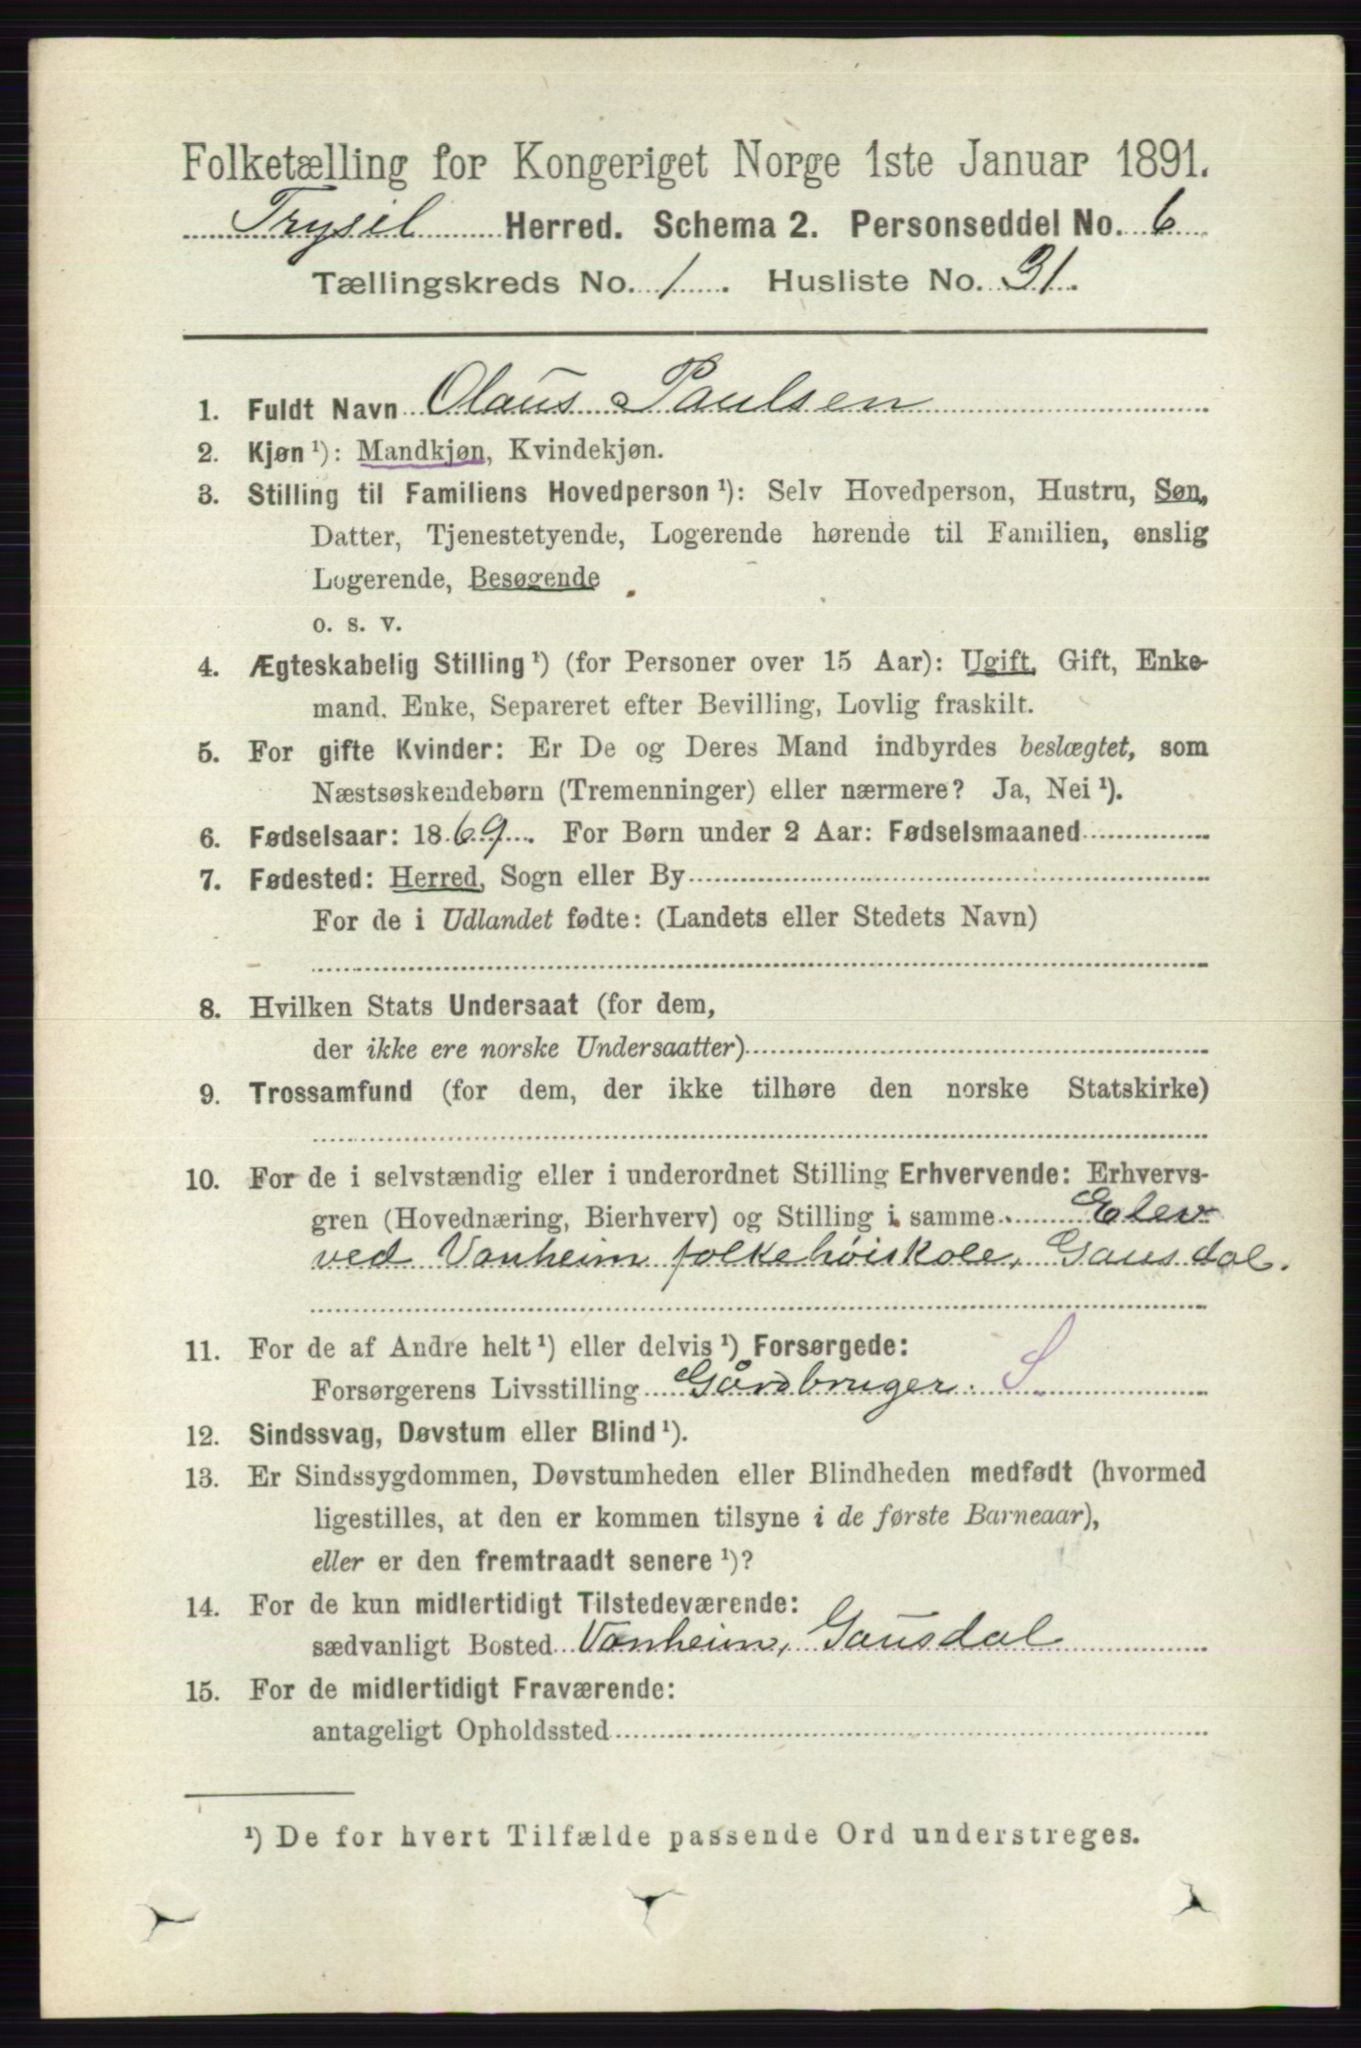 Folketælling for Kongeriget Norge 1ste Januar 1891.
Trysil Herred. Schema 2. Personseddel No. 6
Tællingskreds No. 1. Husliste No. 31.
1. Fuldt Navn Olaus Paulsen
2. Kjøn ¹): Mandkjøn, Kvindekjøn.
3. Stilling til Familiens Hovedperson ¹): Selv Hovedperson, Hustru, Søn,
Datter, Tjenestetyende, Logerende hørende til Familien, enslig
Logerende, Besøgende
o. s. v.
4. Ægteskabelig Stilling ¹) (for Personer over 15 Aar): Ugift, Gift, Enke-
mand, Enke, Separeret efter Bevilling, Lovlig fraskilt.
5. For gifte Kvinder: Er De og Deres Mand indbyrdes beslægtet, som
Næstsøskendebørn (Tremenninger) eller nærmere? Ja, Nei ¹).
6. Fødselsaar: 1869. For Børn under 2 Aar: Fødselsmaaned
7. Fødested: Herred, Sogn eller By
For de i Udlandet fødte: (Landets eller Stedets Navn)
8. Hvilken Stats Undersaat (for dem,
der ikke ere norske Undersaatter)
9. Trossamfund (for dem, der ikke tilhøre den norske Statskirke)
10. For de i selvstændig eller i underordnet Stilling Erhvervende: Erhvervs-
gren (Hovednæring, Bierhverv) og Stilling i samme Elev
ved Vonheim folkehøiskole, Gausdal.
11. For de af Andre helt ¹) eller delvis ¹) Forsørgede:
Forsørgerens Livsstilling Gårdbruger. S
12. Sindssvag, Døvstum eller Blind ¹).
13. Er Sindssygdommen, Døvstumheden eller Blindheden medfødt (hvormed
ligestilles, at den er kommen tilsyne i de første Barneaar),
eller er den fremtraadt senere ¹)?
14. For de kun midlertidigt Tilstedeværende:
sædvanligt Bosted Vonheim, Gausdal
15. For de midlertidigt Fraværende:
antageligt Opholdssted
¹) De for hvert Tilfælde passende Ord understreges.